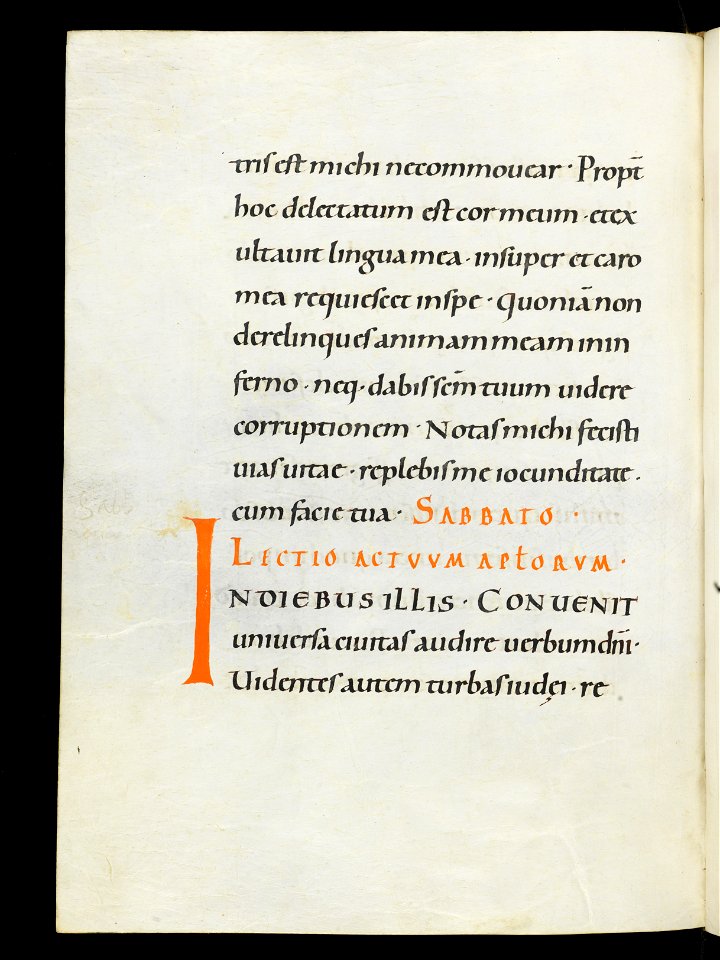 tris est michi necommouear · Propt̄
hoc delectatum est cor meum · et ex
ultauit lingua mea · insuper et caro
mea requiescet in spe · Quoniā non
derelinques animam meam in in
ferno · neq· dabis sc̄m tuum uidere
corruptionem · Notas michi fecisti
uias uitae · replebis me iocunditate ·
cum facie tua · SABBATO ·
LECTIO ACTVVM APƚORVM ·
INDIEBUS ILLIS · CONUENIT
uniuersa ciuitas audire uerbum dn̄i ·
Uidentes autem turbas iudęi · re